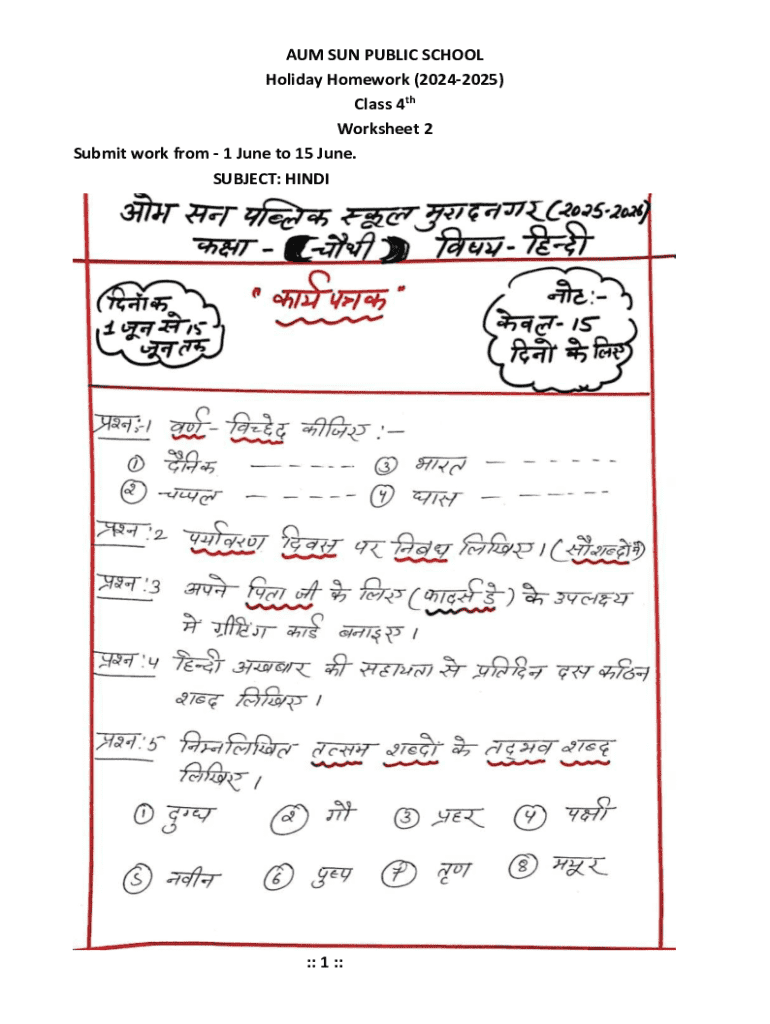 AUM SUN PUBLIC SCHOOL
Holiday Homework (2024-2025)
Class 4th
Worksheet 2
Submit work from - 1 June to 15 June.
SUBJECT: HINDI
ओम सन पब्लिक स्कूल मुरादनगर (2025-2026)
कक्षा - (चौथी) विषय - हिन्दी
दिनांक
1 जून से 15
जून तक
"कार्य पत्रक"
नोट:-
केवल - 15
दिनों के लिए
प्रश्न:-1 वर्ण - विच्छेद कीजिए :-
① दैनिक - - - - - - ③ भारत - - - - - - -
② चप्पल - - - - - ④ घास - - - - - -
प्रश्न:2 पर्यावरण दिवस पर निबंध लिखिए। (सौ शब्दों में)
प्रश्न:3 अपने पिता जी के लिए (फादर्स डे) के उपलक्ष्य
में ग्रीटिंग कार्ड बनाइए।
प्रश्न:4 हिन्दी अखबार की सहायता से प्रतिदिन दस कठिन
शब्द लिखिए।
प्रश्न:5 निम्नलिखित तत्सम शब्दों के तद्भव शब्द
लिखिए।
① दुग्ध ② गौ ③ प्रहर ④ पक्षी
⑤ नवीन ⑥ पुष्प ⑦ तृण ⑧ मयूर
:: 1 ::